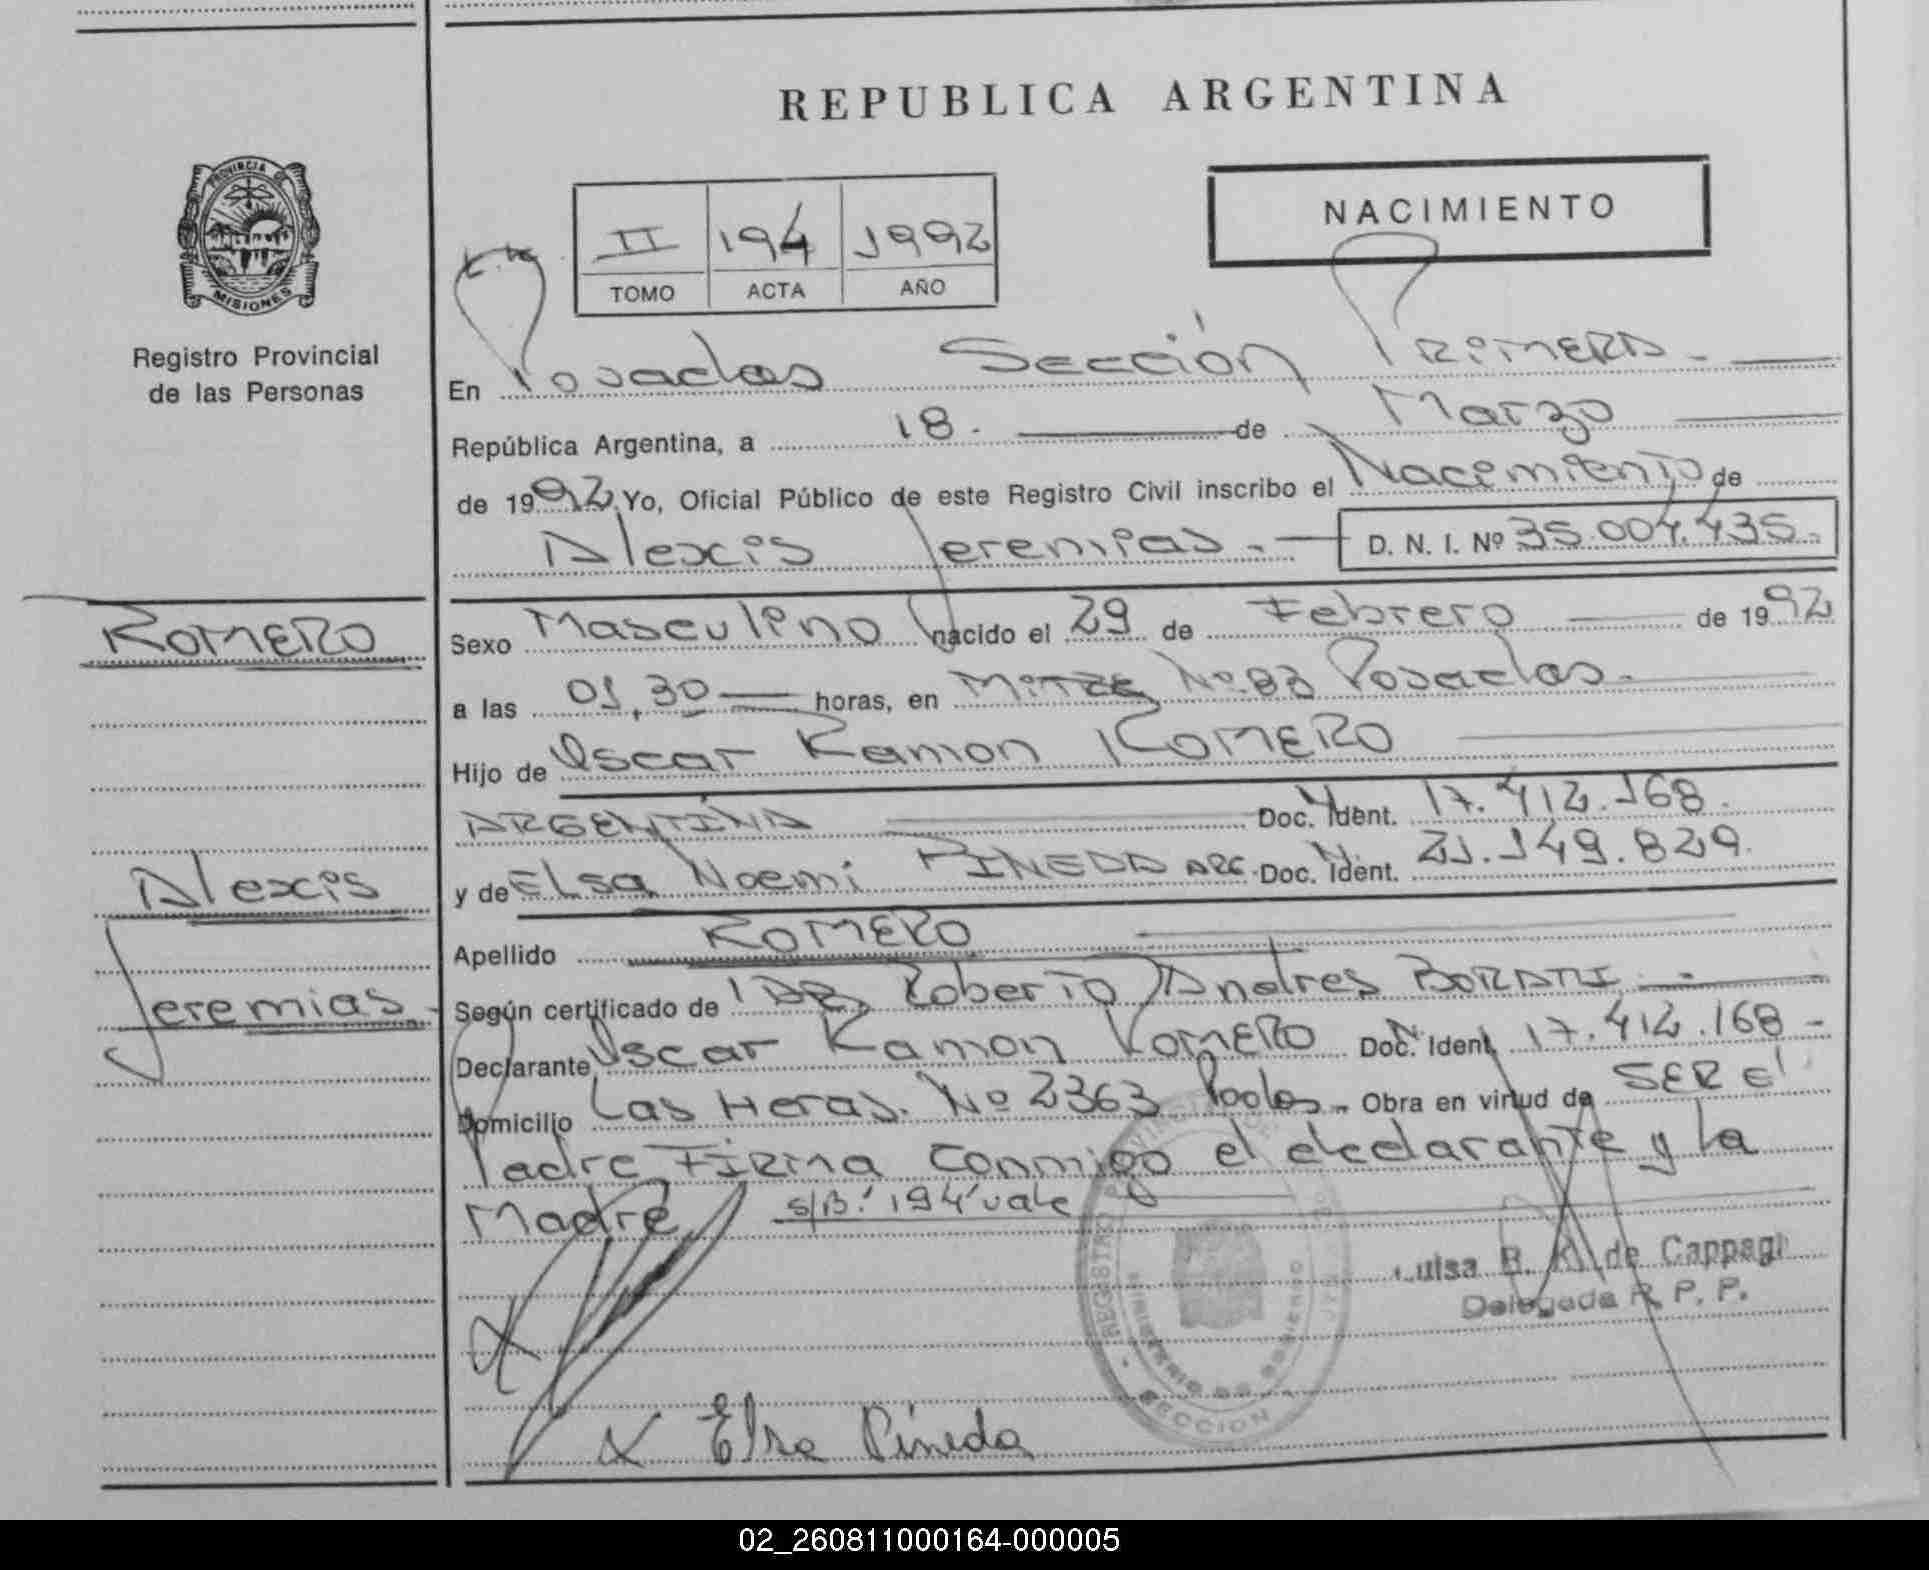 REPUBLICA ARGENTINA
PROVINCIA DE
MISIONES
Registro Provincial
de las Personas
II 194 1992
TOMO ACTA AÑO
NACIMIENTO
En Posadas Sección PRIMERA.-
República Argentina, a 18.- de Marzo
de 1992 Yo, Oficial Público de este Registro Civil inscribo el Nacimiento de
Alexis Jeremias.- D. N. I. Nº 35.004.435.-
ROMERO
Sexo Masculino nacido el 29 de Febrero de 1992
a las 01,30 horas, en Nº.83 Posadas.-
Hijo de Oscar Ramon ROMERO
ARGENTINA Doc. Ident. 17.412.168.
Alexis
y de Elsa Noemi PINEDA ARG. Doc. Ident. 21.149.829.
Apellido ROMERO
Jeremias.-
Según certificado de DR. Roberto Andres
Declarante Oscar Ramon ROMERO Doc. Ident. 17.412.168-
Domicilio Las Heras. Nº 2363 Pdas.- Obra en virtud de SER el
Padre FIRMA conmigo el declarante y la
Madre s/B:"194"vale
Luisa B. K. de Cappagi
Delegada R. P. P.
REGISTRO PROVINCIAL DE
MINISTERIO DE GOBIERNO
SECCION
x Elsa Pineda
02_260811000164-000005